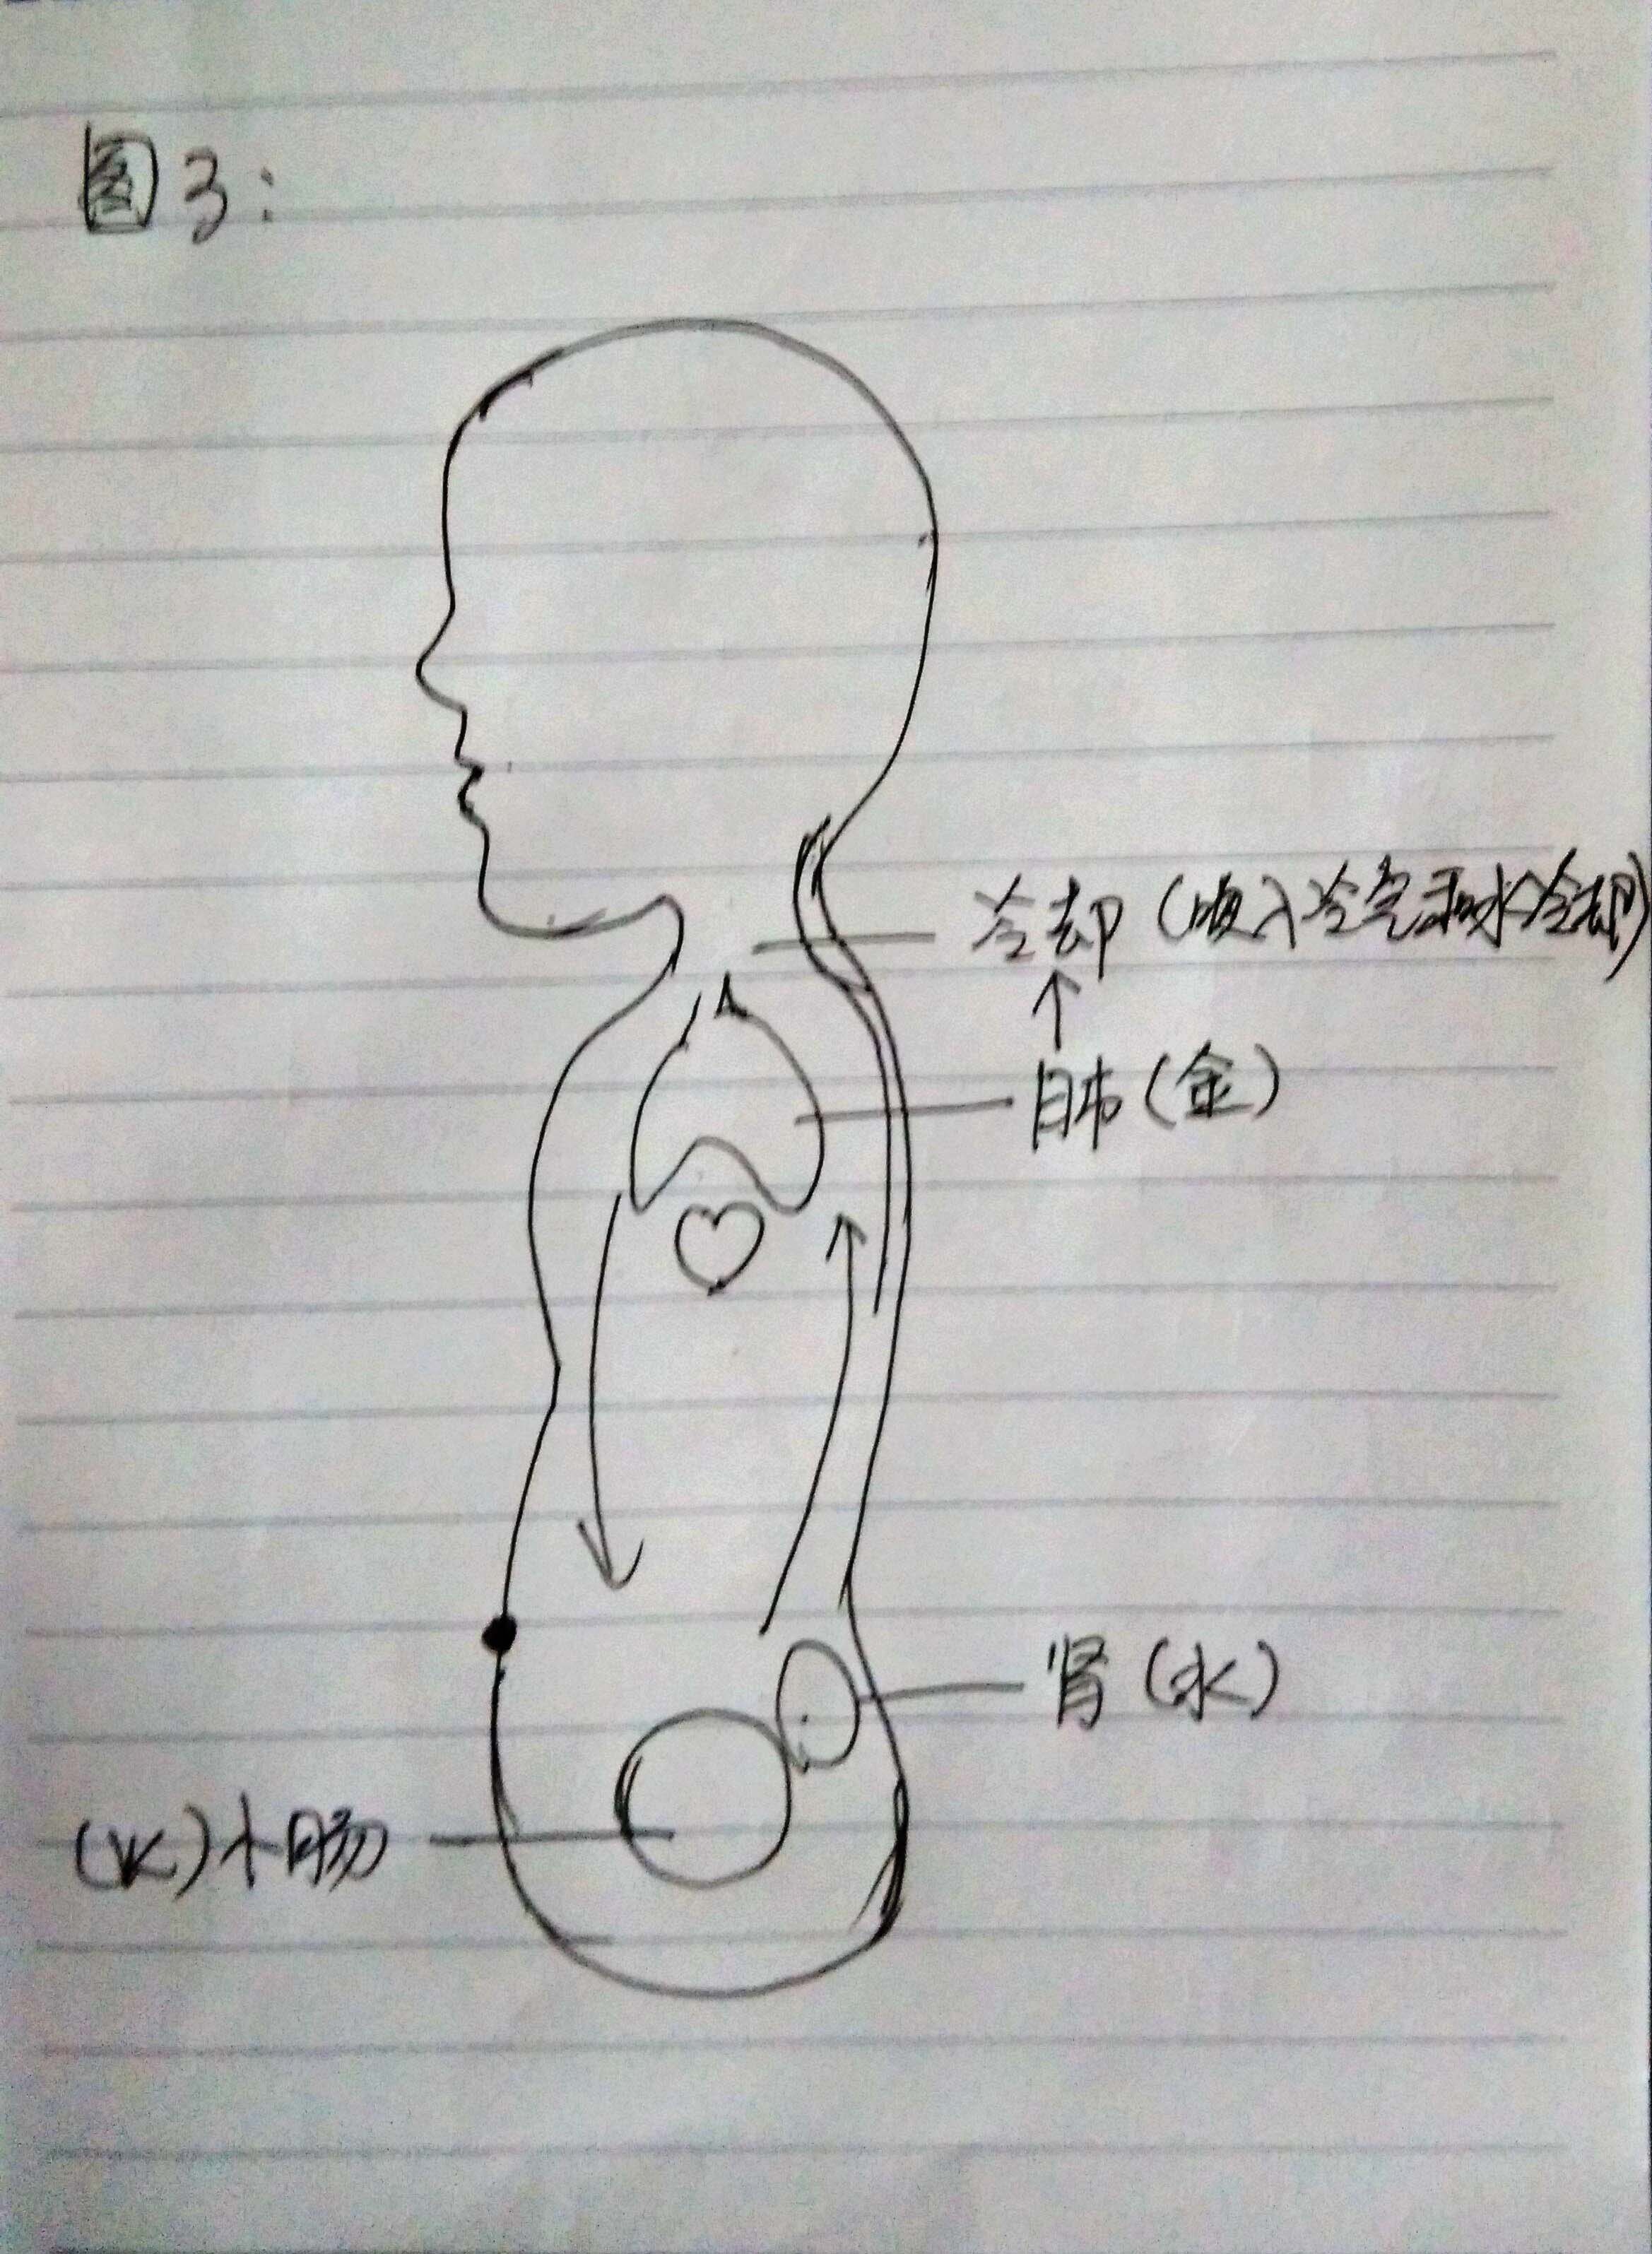 图3:
冷却（吸入冷气和水冷却）
↑
肺（金）
肾（水）
（火）小肠